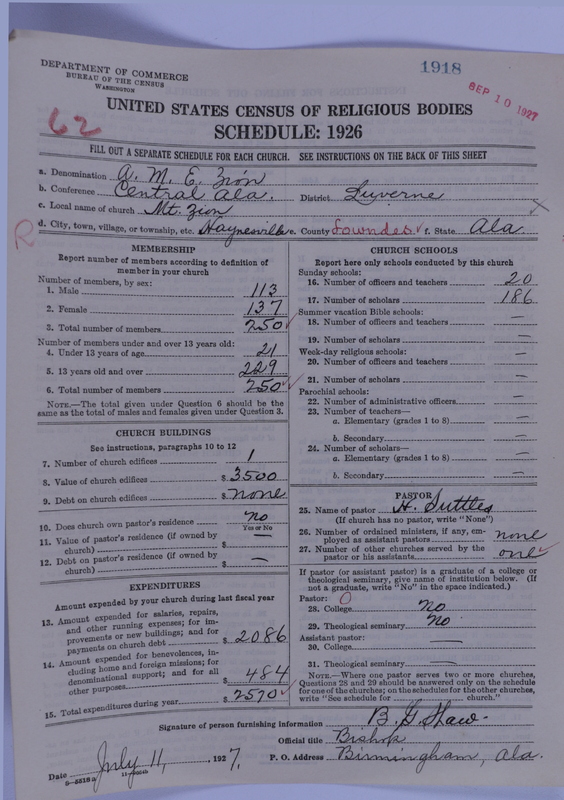 1918
DEPARTMENT OF COMMERCE
BUREAU OF THE CENSUS
WASHINGTON
SEP 10 1927
UNITED STATES CENSUS OF RELIGIOUS BODIES
62
SCHEDULE: 1926
FILL OUT A SEPARATE SCHEDULE FOR EACH CHURCH. SEE INSTRUCTIONS ON THE BACK OF THIS SHEET
a. Denomination A. M. E. Zion
b. Conference Central Ala. District Luverne
c. Local name of church Mt. Zion
d. City, town, village, or township, etc. Haynesville e. County Lowndes f. State Ala
R
MEMBERSHIP
Report number of members according to definition of
member in your church
Number of members, by sex:
1. Male 113
2. Female 137
3. Total number of members 250
Number of members under and over 13 years old:
4. Under 13 years of age 21
5. 13 years old and over 229
6. Total number of members 250
NOTE.—The total given under Question 6 should be the
same as the total of males and females given under Question 3.
CHURCH BUILDINGS
See instructions, paragraphs 10 to 12
7. Number of church edifices 1
8. Value of church edifices $ 3500
9. Debt on church edifices $ none
10. Does church own pastor's residence no
Yes or No
11. Value of pastor's residence (if owned by
church) $ —
12. Debt on pastor's residence (if owned by
church) $ —
EXPENDITURES
Amount expended by your church during last fiscal year
13. Amount expended for salaries, repairs,
and other running expenses; for im-
provements or new buildings; and for
payments on church debt $ 2086
14. Amount expended for benevolences, in-
cluding home and foreign missions; for
denominational support; and for all
other purposes $ 484
15. Total expenditures during year $ 2570
CHURCH SCHOOLS
Report here only schools conducted by this church
Sunday schools:
16. Number of officers and teachers 20
17. Number of scholars 186
Summer vacation Bible schools:
18. Number of officers and teachers —
19. Number of scholars —
Week-day religious schools:
20. Number of officers and teachers —
21. Number of scholars —
Parochial schools:
22. Number of administrative officers —
23. Number of teachers—
a. Elementary (grades 1 to 8) —
b. Secondary —
24. Number of scholars—
a. Elementary (grades 1 to 8) —
b. Secondary —
PASTOR
25. Name of pastor H. Suttles
(If church has no pastor, write "None")
26. Number of ordained ministers, if any, em-
ployed as assistant pastors none
27. Number of other churches served by the
pastor or his assistants one
If pastor (or assistant pastor) is a graduate of a college or
theological seminary, give name of institution below. (If
not a graduate, write "No" in the space indicated.)
Pastor: O
28. College no
29. Theological seminary no
Assistant pastor:
30. College —
31. Theological seminary —
NOTE.—Where one pastor serves two or more churches,
Questions 28 and 29 should be answered only on the schedule
for one of the churches; on the schedules for the other churches,
write "See schedule for church."
Signature of person furnishing information B. G. Shaw
Official title Bishop
Date July 11, 1927. P. O. Address Birmingham, Ala.